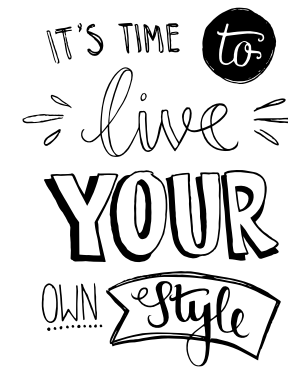 IT'S TIME to
live
YOUR
OWN Style